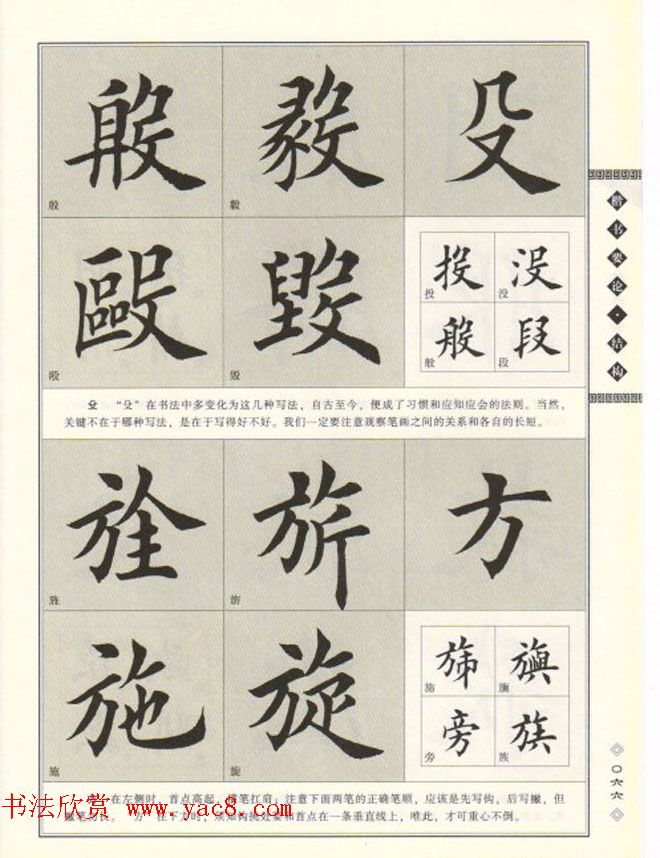 殷 毅 殳
殷
毅
楷书要论·结构
殴 毁
投 没
投
没
般 段
般
段
殴
毁
殳 “殳”在书法中多变化为这几种写法，自古至今，便成了习惯和应知应会的法则。当然，
关键不在于哪种写法，是在于写得好不好。我们一定要注意观察笔画之间的关系和各自的长短。
旂 方
施 旋
旁 族
旁
族
施
旋
〇六六
在左侧时，首点高起，横笔扛肩；注意下面两笔的正确笔顺，应该是先写钩，后写撇，但
和首点在一条垂直线上，唯此，才可重心不倒。
书法欣赏 www.yac8.com